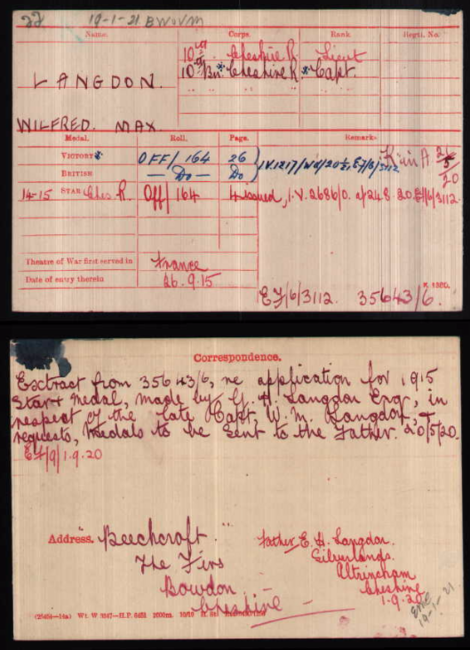 19-1-21 BWVM
Name. Corps. Rank. Regtl. No.
10th Cheshire R. Lieut
10th Bn Cheshire R. Capt
LANGDON.
WILFRED. MAX.
Medal. Roll. Page. Remarks.
VICTORY OFF/164 26
BRITISH — Do — Do
Kin A 26
5
20
14-15 STAR Ches. R. Off/164 4 issued, I.V. 2686/0. d/24.8.20 EF/6/3112.
Theatre of War first served in France
Date of entry therein 26.9.15
K 1380.
EF/6/3112. 35643/6.
Correspondence.
Extract from 35643/6, re application for 1915
Star Medal, made by G. H. Langdon Esqr, in
respect of the late Capt, W. M. Langdon,
requests, medals to be sent to the Father. 20/5/20.
EF/9/1.9.20
Address. Beechcroft
The Firs
Bowdon
Cheshire
Father E. H. Langdon.
Silverlands.
Altrincham
Cheshire
1.9.20
19-1-21